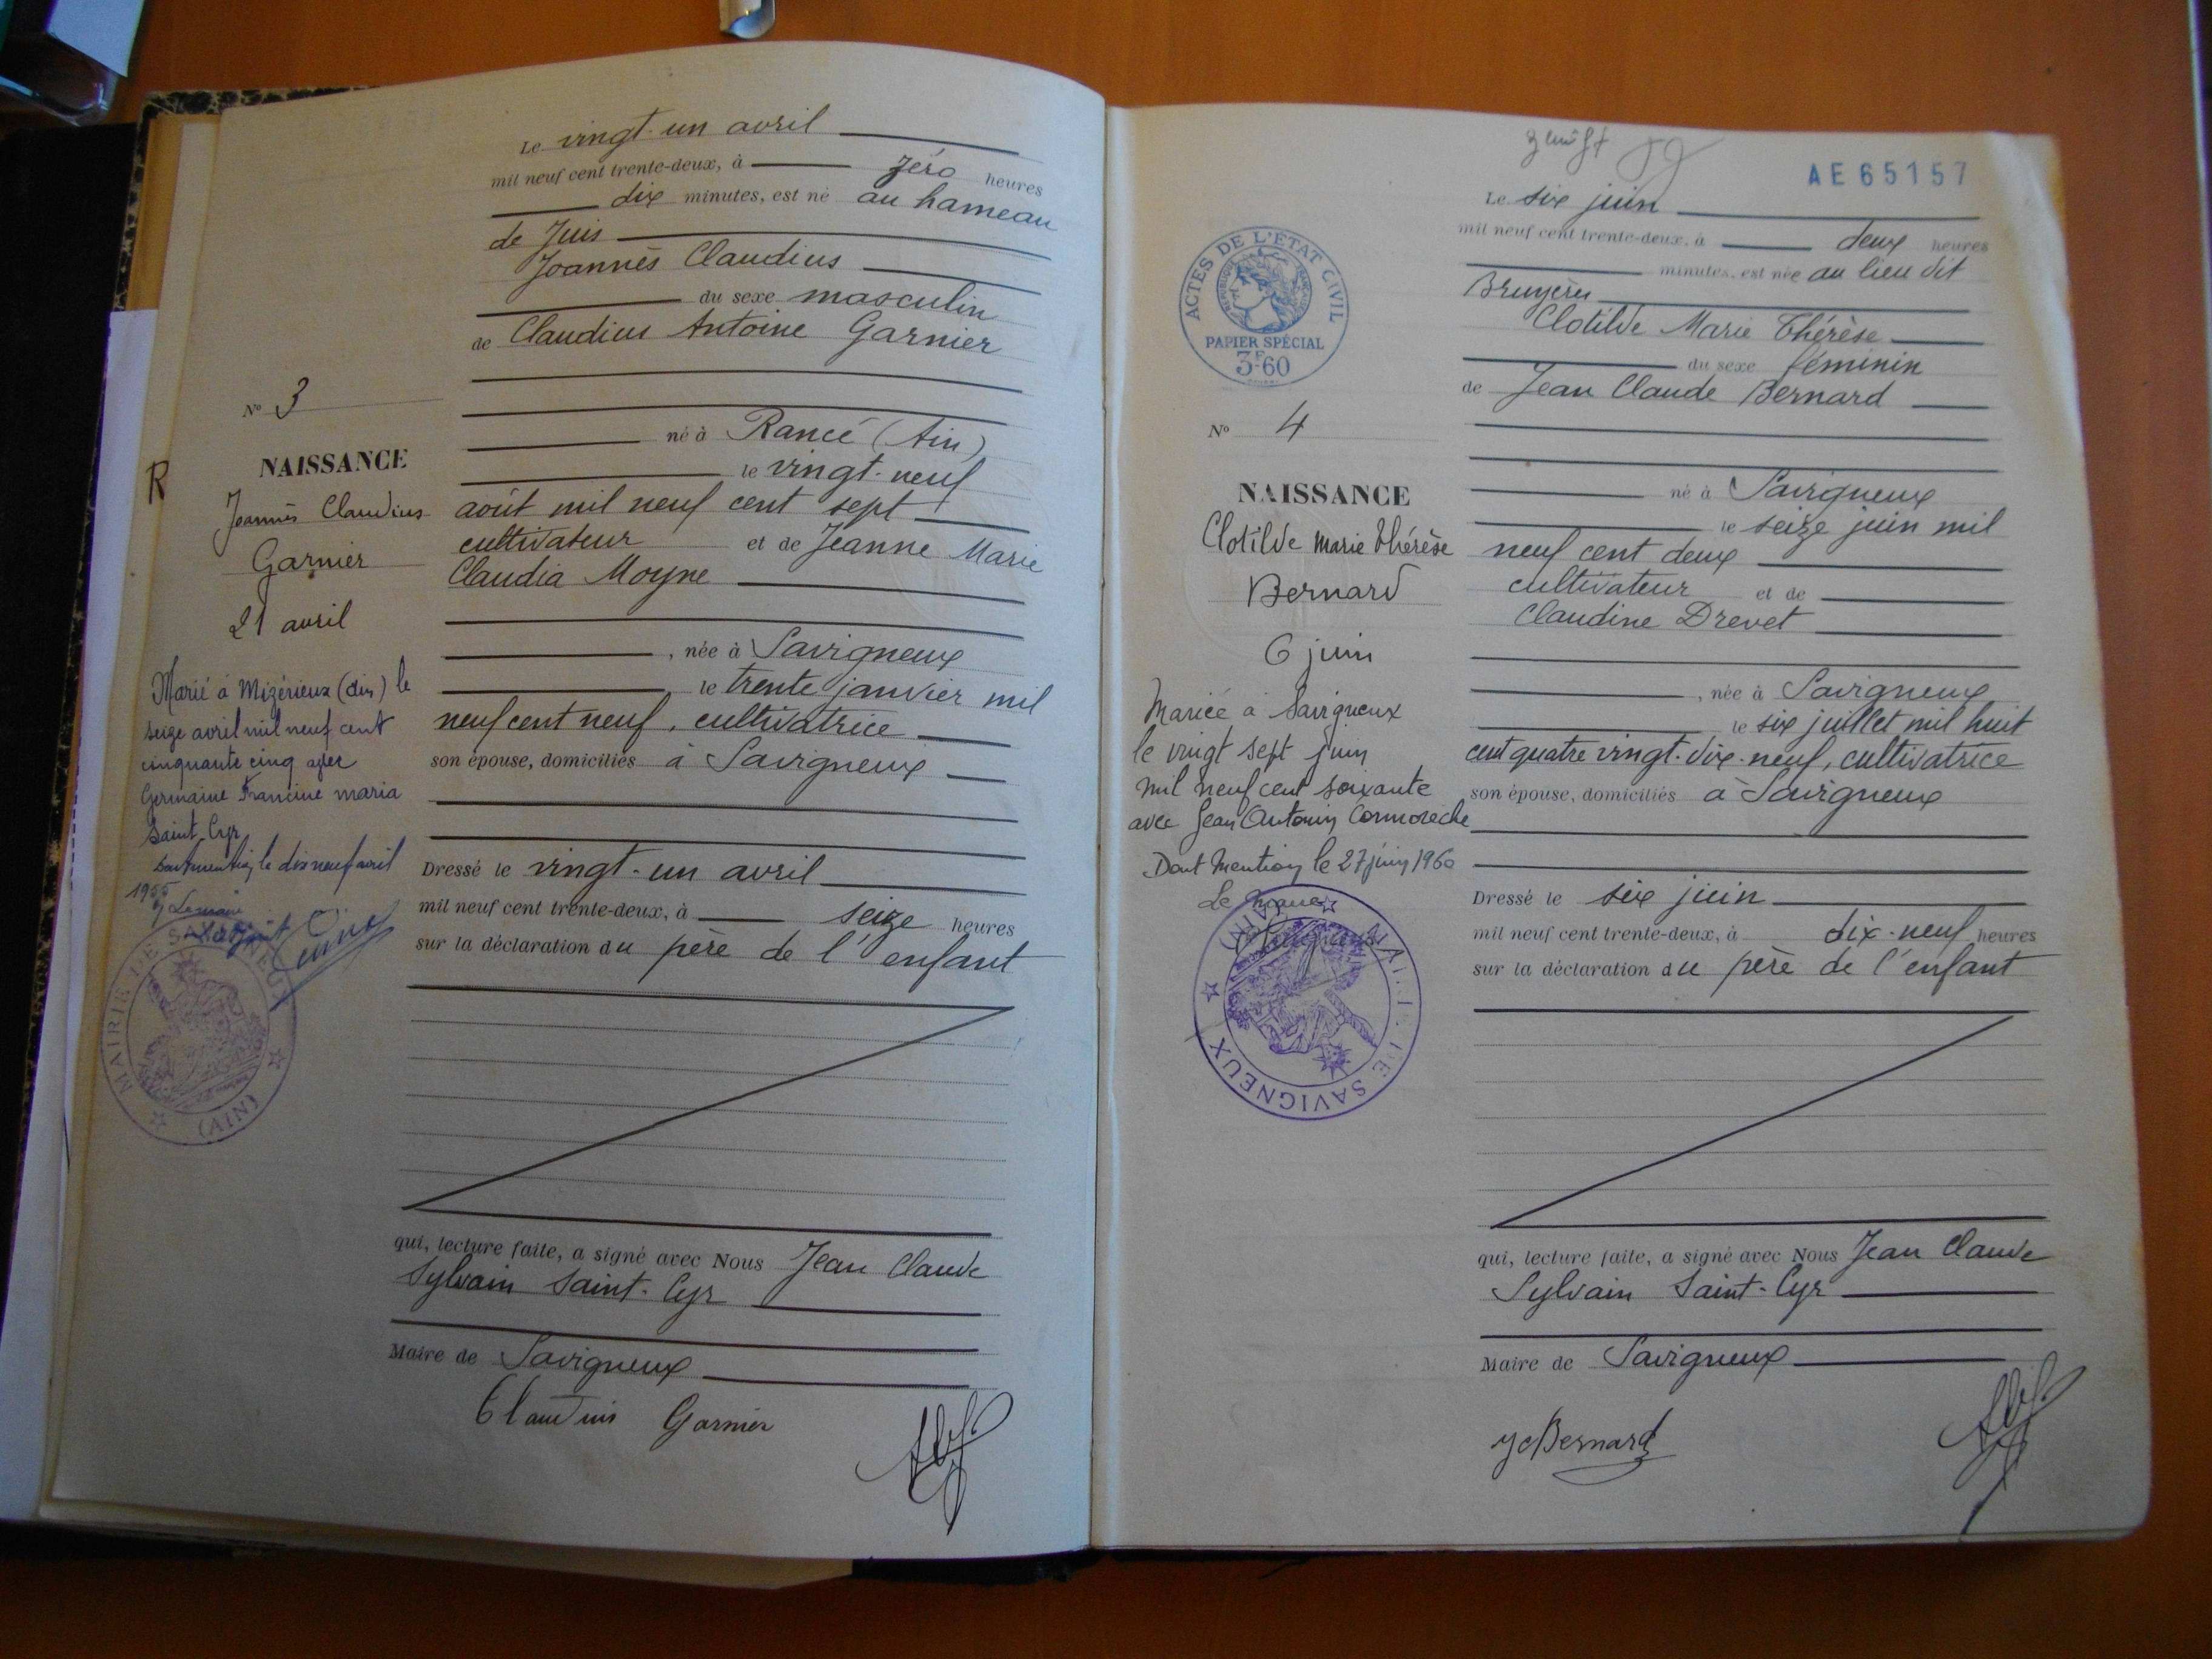 Le vingt-un avril
mil neuf cent trente-deux, à zéro heures
dix minutes, est né au hameau
de Juis
Joannès Claudius
du sexe masculin
de Claudius Antoine Garnier
né à Rancé (Ain)
le vingt-neuf
août mil neuf cent sept
cultivateur et de Jeanne Marie
Claudia Moyne
, née à Savigneux
le trente janvier mil
neuf cent neuf, cultivatrice
son épouse, domiciliés à Savigneux
Dressé le vingt-un avril
mil neuf cent trente-deux, à seize heures
sur la déclaration du père de l'enfant
qui, lecture faite, a signé avec Nous Jean Claude
Sylvain Saint-Cyr
Maire de Savigneux
Claudius Garnier
R
No 3
NAISSANCE
Joannès Claudius
Garnier
21 avril
Marié à Mizérieux (Ain) le
seize avril mil neuf cent
cinquante cinq avec
Germaine Francine Maria
Saint Cyr
Dont mention, le dix neuf avril
1955
MAIRIE DE SAVIGNEUX
(AIN)
AE 65157
Le six juin
mil neuf cent trente-deux, à deux heures
minutes, est née au lieu dit
Bruyères
Clotilde Marie Thérèse
du sexe féminin
de Jean Claude Bernard
né à Savigneux
le seize juin mil
neuf cent deux
cultivateur et de
Claudine Drevet
, née à Savigneux
le six juillet mil huit
cent quatre vingt-dix-neuf, cultivatrice
son épouse, domiciliés à Savigneux
Dressé le six juin
mil neuf cent trente-deux, à dix-neuf heures
sur la déclaration du père de l'enfant
qui, lecture faite, a signé avec Nous Jean Claude
Sylvain Saint-Cyr
Maire de Savigneux
JC Bernard
ACTES DE L'ÉTAT CIVIL
RÉPUBLIQUE FRANÇAISE
PAPIER SPÉCIAL
3F60
No 4
NAISSANCE
Clotilde Marie Thérèse
Bernard
6 juin
Mariée à Savigneux
le vingt sept juin
mil neuf cent soixante
avec Jean Antonin Cormorèche
Dont Mention le 27 juin 1960
Le Maire
MAIRIE DE SAVIGNEUX
(AIN)